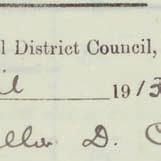 l District Council,
il 1913
llor D. C